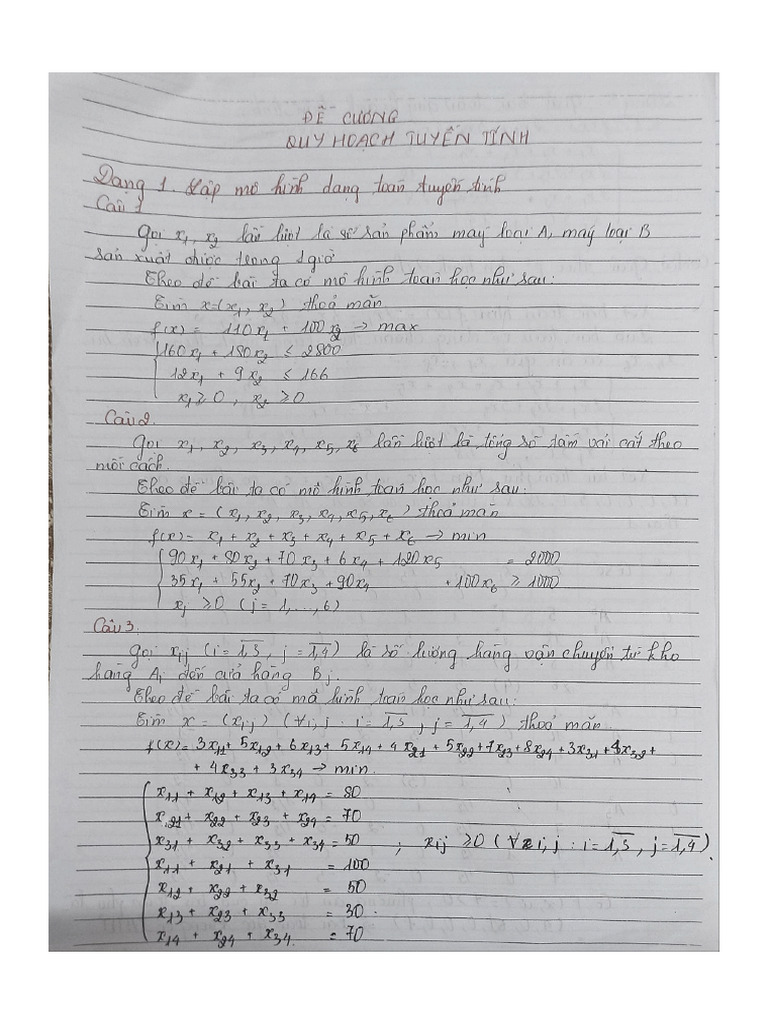 ĐỀ CƯƠNG
QUY HOẠCH TUYẾN TÍNH
Dạng 1. Lập mô hình dạng toán tuyến tính
Câu 1
Gọi x₁, x₂ lần lượt là số sản phẩm máy loại A, máy loại B
sản xuất được trong 1 giờ
Theo đề bài ta có mô hình toán học như sau:
Tìm x=(x₁, x₂) thoả mãn
f(x) = 110x₁ + 100x₂ → max
160x₁ + 180x₂ ≤ 2800
12x₁ + 9x₂ ≤ 166
x₁ ≥ 0, x₂ ≥ 0
Câu 2.
Gọi x₁, x₂, x₃, x₄, x₅, x₆ lần lượt là tổng số tấm vải cắt theo
mỗi cách.
Theo đề bài ta có mô hình toán học như sau:
Tìm x = (x₁, x₂, x₃, x₄, x₅, x₆) thoả mãn
f(x) = x₁ + x₂ + x₃ + x₄ + x₅ + x₆ → min
90x₁ + 80x₂ + 70x₃ + 6x₄ + 120x₅ = 2000
35x₁ + 55x₂ + 70x₃ + 90x₄ + 100x₆ ≥ 1000
xⱼ ≥ 0 (j = 1,...,6)
Câu 3.
Gọi xᵢⱼ (i = 1,3, j = 1,4) là số lượng hàng vận chuyển từ kho
hàng Aᵢ đến cửa hàng Bⱼ.
Theo đề bài ta có mô hình toán học như sau:
Tìm x = (xᵢⱼ) (∀i,j : i = 1,3, j = 1,4) thoả mãn.
f(x) = 3x₁₁ + 5x₁₂ + 6x₁₃ + 5x₁₄ + 4x₂₁ + 5x₂₂ + 7x₂₃ + 8x₂₄ + 3x₃₁ + 8x₃₂ +
+ 4x₃₃ + 3x₃₄ → min.
x₁₁ + x₁₂ + x₁₃ + x₁₄ = 80
x₂₁ + x₂₂ + x₂₃ + x₂₄ = 70
x₃₁ + x₃₂ + x₃₃ + x₃₄ = 50 ; xᵢⱼ ≥ 0 (∀i,j : i = 1,3, j = 1,4).
x₁₁ + x₂₁ + x₃₁ = 100
x₁₂ + x₂₂ + x₃₂ = 50
x₁₃ + x₂₃ + x₃₃ = 30.
x₁₄ + x₂₄ + x₃₄ = 70